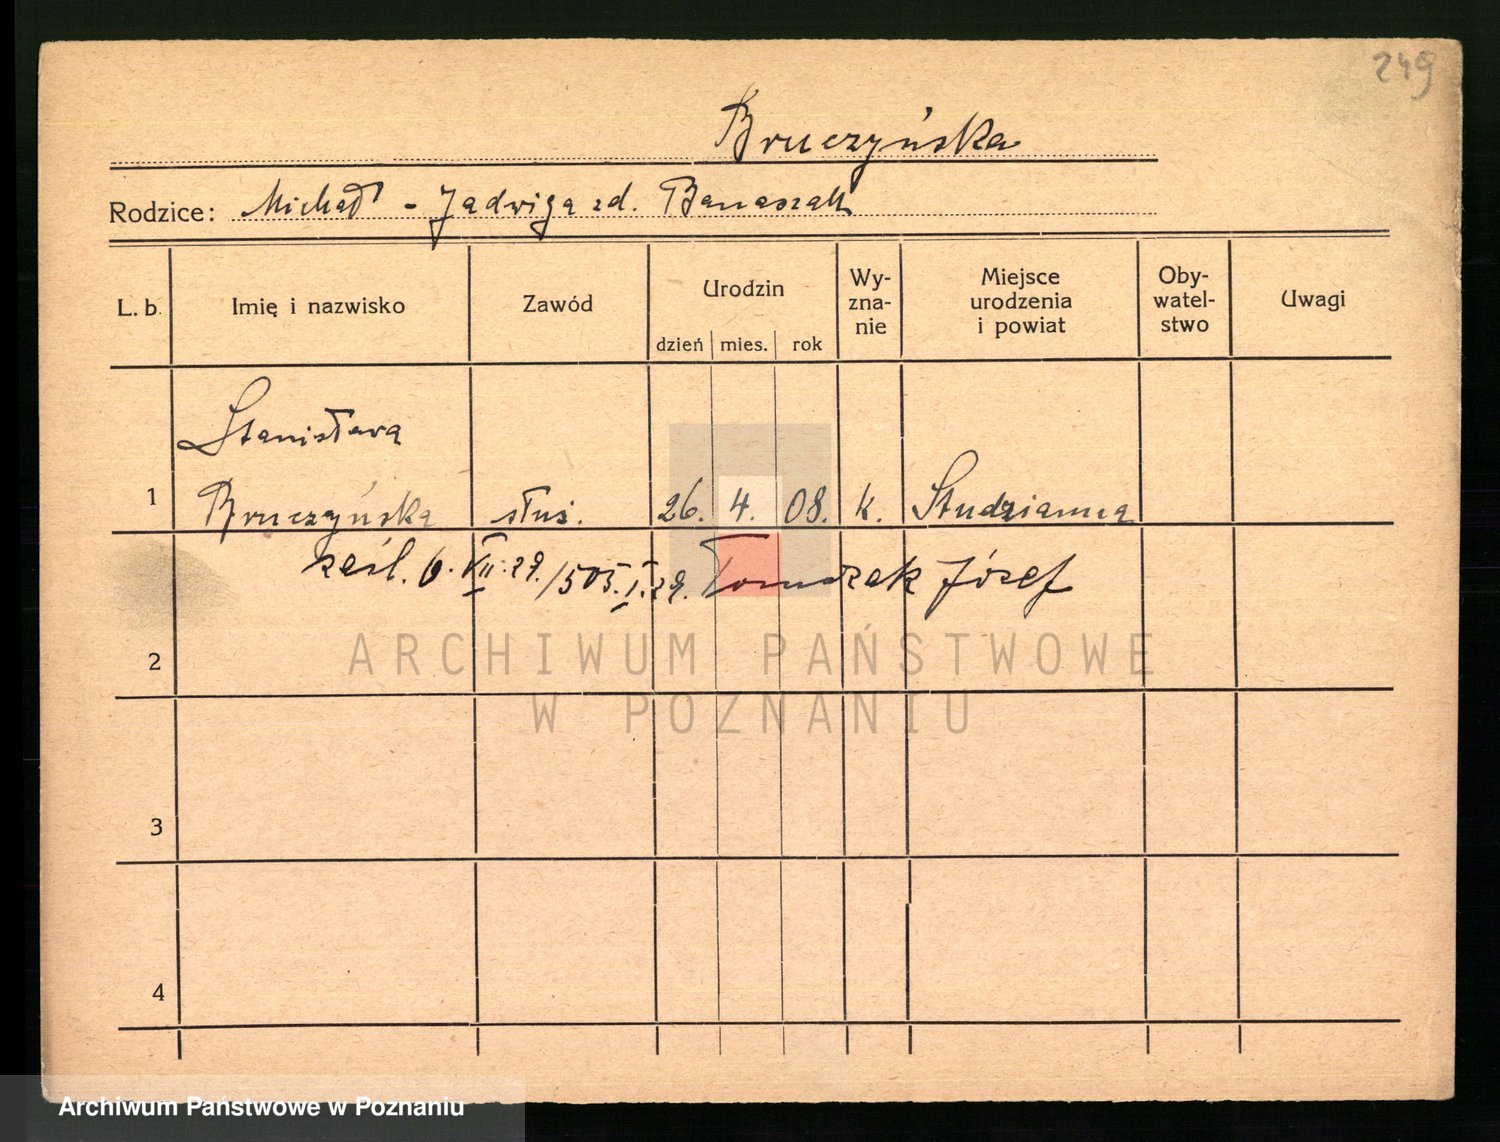 249
Bruczyńska
Rodzice: Michał - Jadwiga zd. Banaszak
L. b. Imię i nazwisko Zawód Urodzin dzień mies. rok Wy-zna-nie Miejsce urodzenia i powiat Oby-watel-stwo Uwagi
Stanisława
1 Bruczyńska służ. 26. 4. 08. k. Studzianna
zaśl. 6. VII. 29. /505. I. 29. Tomczak Józef
2
ARCHIWUM PAŃSTWOWE
W POZNANIU
3
4
Archiwum Państwowe w Poznaniu